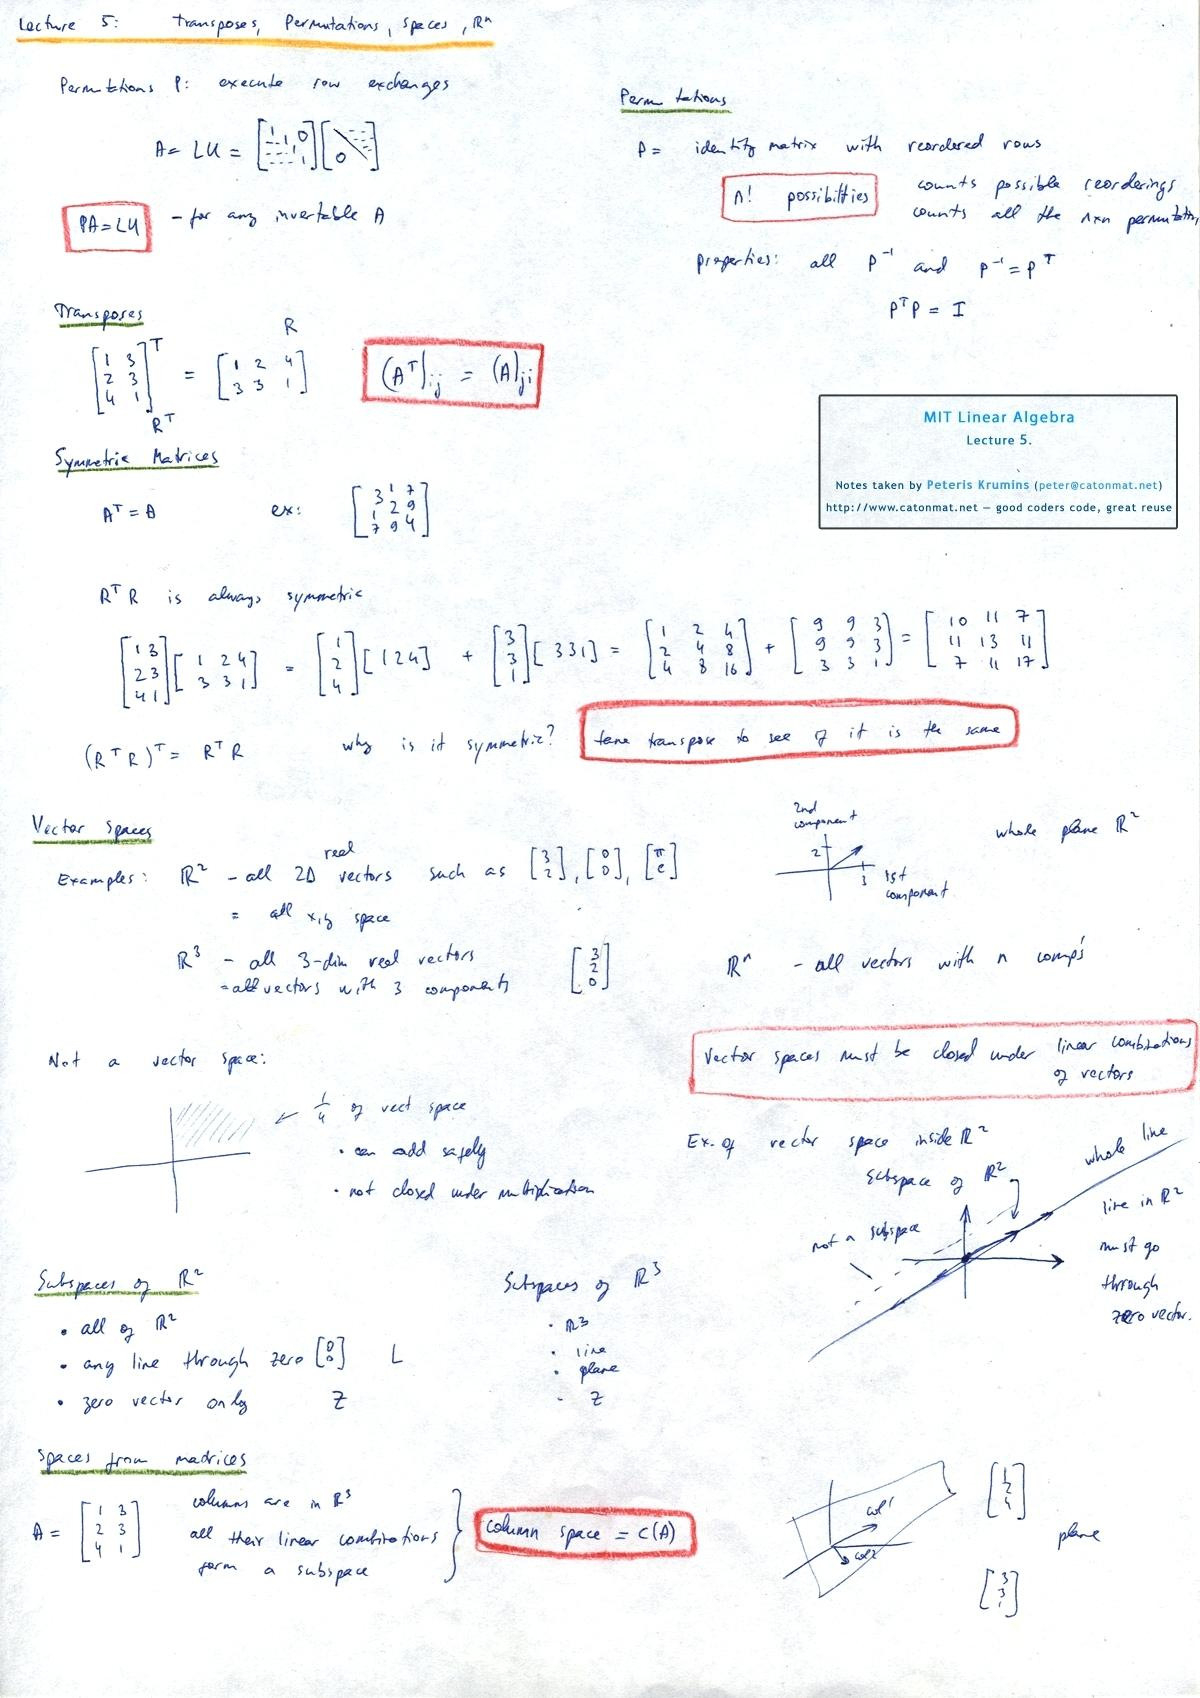 Lecture 5: Transposes, Permutations, spaces, ℝⁿ
Permutations P: execute row exchanges
A = LU = [1 1 0 1] [0]
PA=LU - for any invertable A
Permutations
P = identity matrix with reordered rows
n! possibilities
counts possible reorderings
counts all the nxn permutation
properties: all P⁻¹ and P⁻¹ = Pᵀ
PᵀP = I
Transposes
R
[1 3; 2 3; 4 1]ᵀ = [1 2 4; 3 3 1]
Rᵀ
(Aᵀ)ij = (A)ji
MIT Linear Algebra
Lecture 5.
Notes taken by Peteris Krumins (peter@catonmat.net)
http://www.catonmat.net – good coders code, great reuse
Symmetric Matrices
Aᵀ = A ex: [3 1 7; 1 2 9; 7 9 4]
RᵀR is always symmetric
[1 3; 2 3; 4 1] [1 2 4; 3 3 1] = [1; 2; 4] [1 2 4] + [3; 3; 1] [3 3 1] = [1 2 4; 2 4 8; 4 8 16] + [9 9 3; 9 9 3; 3 3 1] = [10 11 7; 11 13 11; 7 11 17]
(RᵀR)ᵀ = RᵀR why is it symmetric? take transpose to see if it is the same
Vector spaces
Examples: ℝ² - all 2D real vectors such as [3; 2], [0; 0], [π; e]
= all x,y space
2nd component
2
3
1st component
whole plane ℝ²
ℝ³ - all 3-dim real vectors [3; 2; 0]
= all vectors with 3 components
ℝⁿ - all vectors with n comp's
Not a vector space:
← 1/4 of vect space
• can add safely
• not closed under multiplication
Vector spaces must be closed under linear combinations
of vectors
Ex. of vector space inside ℝ²
Subspace of ℝ²
not a subspace
whole line
line in ℝ²
must go
through
zero vector.
Subspaces of ℝ²
• all of ℝ²
• any line through zero [0; 0] L
• zero vector only Z
Subspaces of ℝ³
· ℝ³
· line
· plane
· Z
Spaces from madrices
A = [1 3; 2 3; 4 1]
columns are in ℝ³
all their linear combinations
form a subspace
column space = C(A)
col1
col2
[1; 2; 4]
plane
[3; 3; 1]